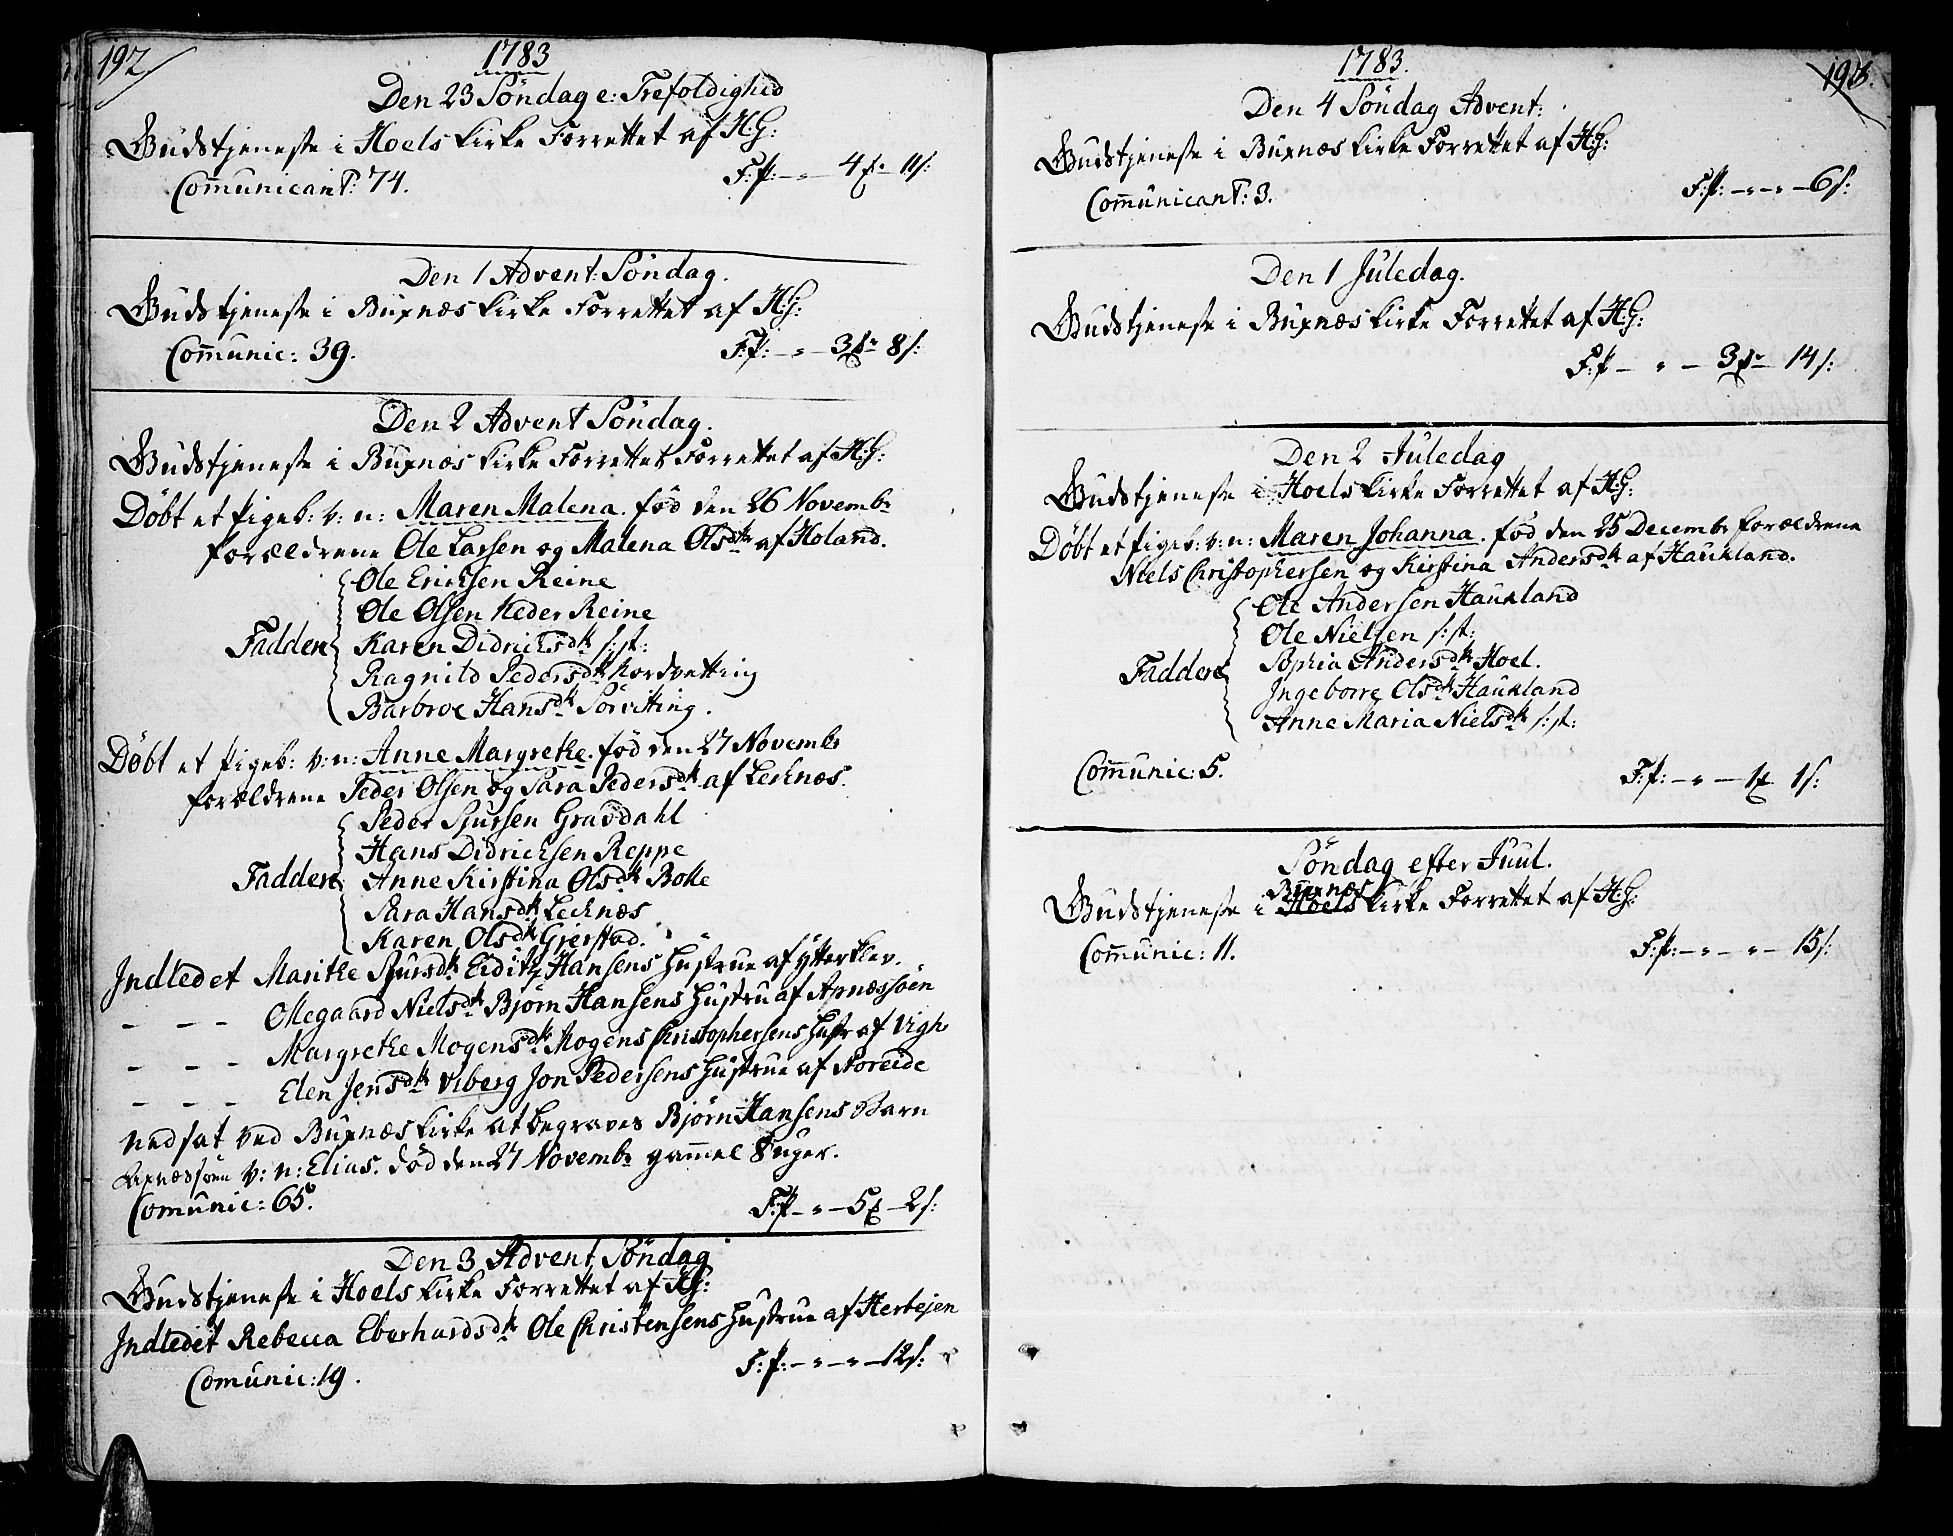 192
1783
Den 23 Söndag e: Trefoldighed
Gudstjeneste i Hoels Kirke Forrettet af H:G:
Communicant: 74. F:P: - " - 4 11 s:
Den 1 Advent: Söndag.
Gudstjeneste i Buxnæs Kirke Forrettet af H:G:
Communic: 39. F:P: - " - 3 8 s:
Den 2 Advent Söndag.
Gudstjeneste i Buxnæs Kirke Forrettet Forrettet af H:G:
Döbt et Pigeb: v: n: Maren Malena. föd den 26 Novembr
forældrene Ole Larsen og Malena Olsdtr af Holand.
Ole Ericksen Reine
Ole Olsen Neder Reine
Faddere Karen Didrichsdtr s: st:
Ragnild Pedersdtr Nordvetting
Barbroe Hansdtr Sörvitting.
Döbt et Pigeb: v: n: Anne Margrethe. föd den 27 Novembr
forældrene Peder Olsen og Sara Pedersdtr af Lecknæs.
Peder Sjursen Gravdahl
Hans Didricksen Reppe
Faddere Anne Kirstina Olsdtr Bolle
Sara Hansdtr Lecknæs
Karen Olsdtr Gjerstad.
Indledet Marithe Sjursdtr Hansens Hustrue af Ytterklev.
- - - Ollegaard Nielsdtr Björn Hansens Hustru af Apnæssöen
- - - Margrethe Mogensdtr Mogens Christophersens Hustr af Vigh
- - - Elen Jensdtr Viberg Jon Pedersens Hustrue af Noreide
Nedsat ved Buxnæs Kirke at begraves Björn Hansens Barn
v: n: Elias. död den 27 Novembr gammel 8 uger.
Comunic: 65. F:P - " - 5 - 2 s:
Den 3 Advent Söndag
Gudstjeneste i Hoels Kirke Forrettet af H:G:
Indledet Rebecca Eberhardsdtr Ole Christensens Hustrue af Hertejen
Comunic: 19. F:P: - " - " - 12 s:
1783.
193.
Den 4 Söndag Advent:
Gudstjeneste i Buxnæs Kirke Forrettet af H:G:
Communicant: 3. F:P: - " - " - 6 s:
Den 1 Juledag.
Gudstjeneste i Buxnæs Kirke Forrettet af H:G:
F:P - " - 3 14 s:
Den 2 Juledag
Gudstjeneste i Hoels Kirke Forrettet af H:G:
Döbt et Pigeb: v: n: Maren Johanna. föd den 25 Decembr forældrene
Niels Christophersen og Kirstina Andersdtr af Haukland.
Ole Andersen Haukland
Ole Nielsen s: st:
Faddere Sophia Andersdtr Hoel.
Ingeborre Olsdtr Haukland
Anne Maria Nielsdtr s: st:
Communic: 5. F:P: - " - 1 1 s:
Söndag efter Juul.
Buxnæs
Gudstjeneste i Hoels Kirke Forrettet af H:G:
Communic: 11. F:P: - " - " - 15 s: